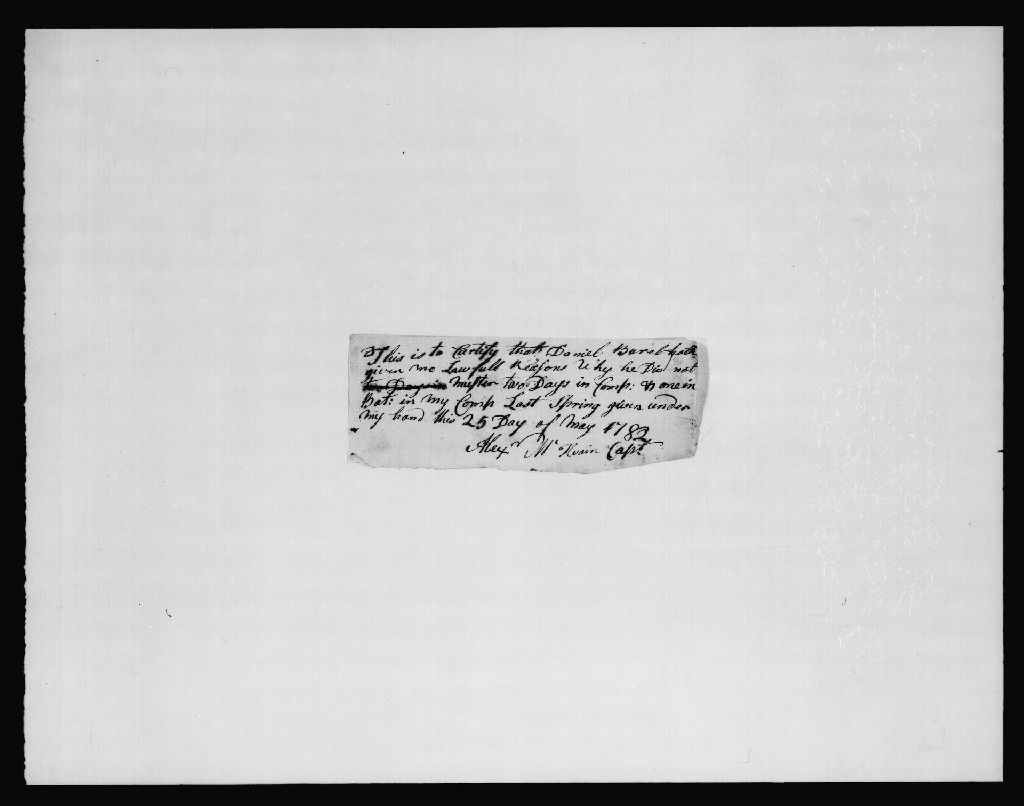 This is to Certify that Daniel Barel hath
given me Lawfull Reasons Why he Did not
two Days in Muster two Days in Comp: & one in
Bat: in my Comp Last Spring given under
my hand this 25 Day of May 1782
Alexr Mc Ilvain Capt